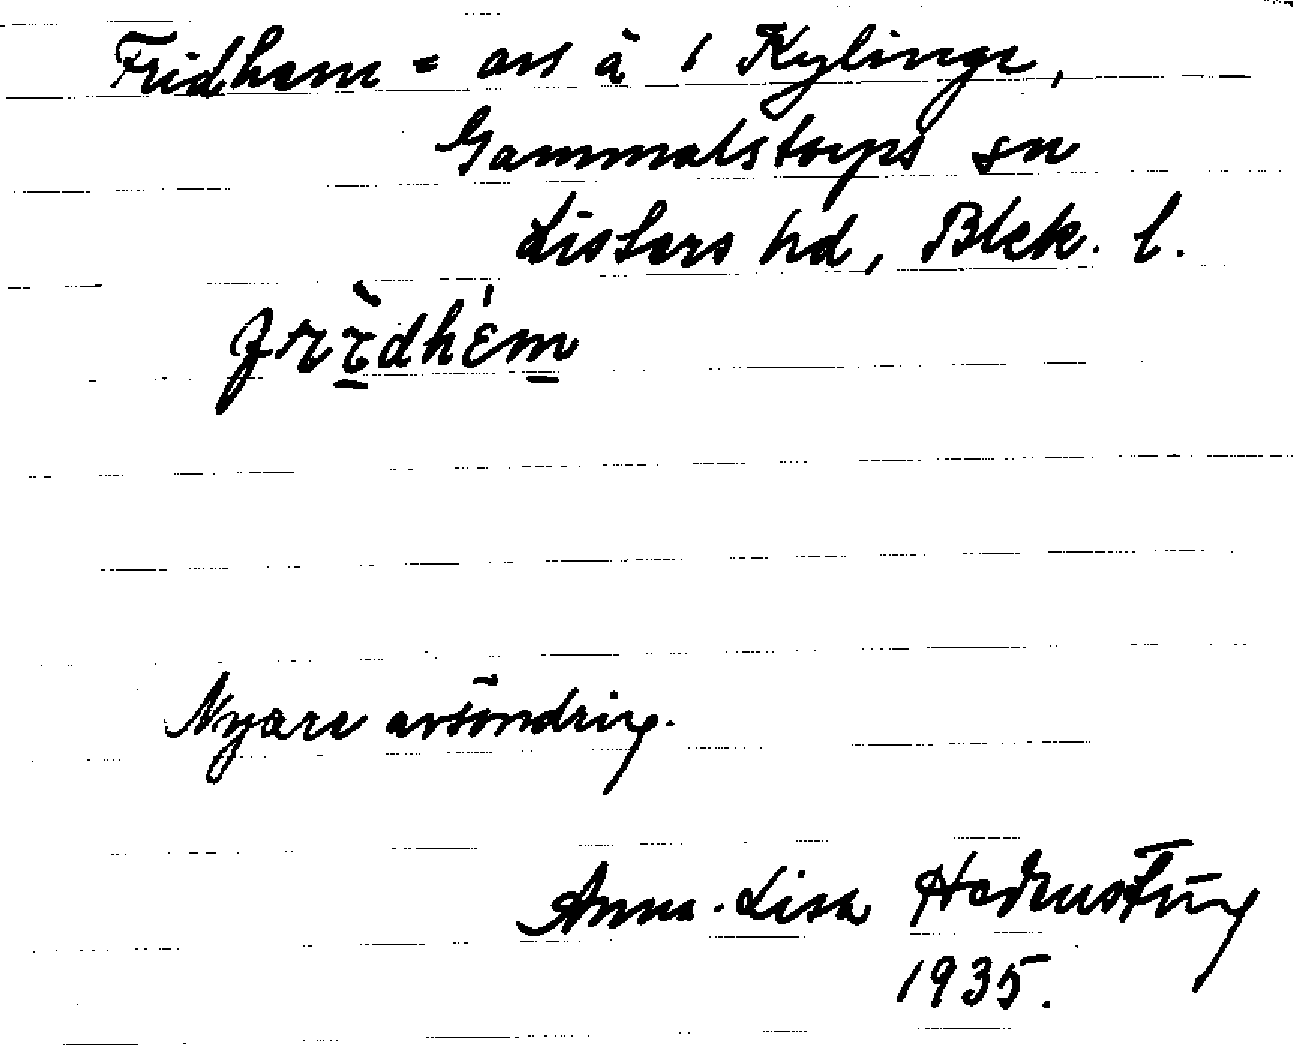 Fridhem = avs å 1 Kylinge,
Gammalstorps sn
Listers hd, Blek. l.
frìdhém
Nyare avsöndring.
Anna-Lisa
1935.